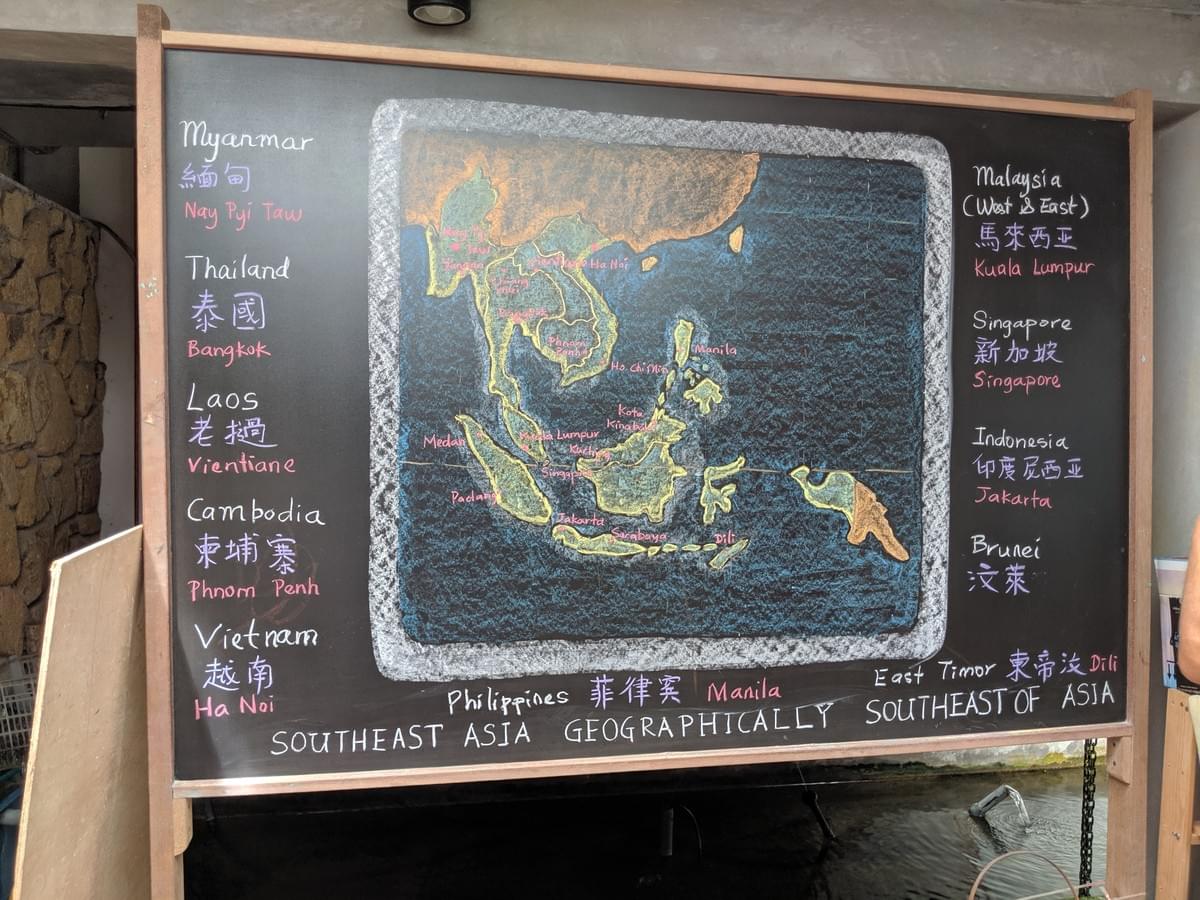 Myanmar
緬甸
Nay Pyi Taw
Thailand
泰國
Bangkok
Laos
老撾
Vientiane
Cambodia
柬埔寨
Phnom Penh
Vietnam
越南
Ha Noi
Nay Pyi
Taw
Yangon
Vientiane Ha Noi
Chiang
Mai
Bangkok
Phnom
Penh
Manila
Ho Chi Min
Kota
Kinabalu
Medan
Kuala Lumpur
Kuching
Singapore
Padang
Jakarta
Surabaya
Dili
Malaysia
(West & East)
馬來西亚
Kuala Lumpur
Singapore
新加坡
Singapore
Indonesia
印度尼西亚
Jakarta
Brunei
汶萊
Philippines 菲律宾 Manila
East Timor 東帝汶 Dili
SOUTHEAST ASIA GEOGRAPHICALLY SOUTHEAST OF ASIA